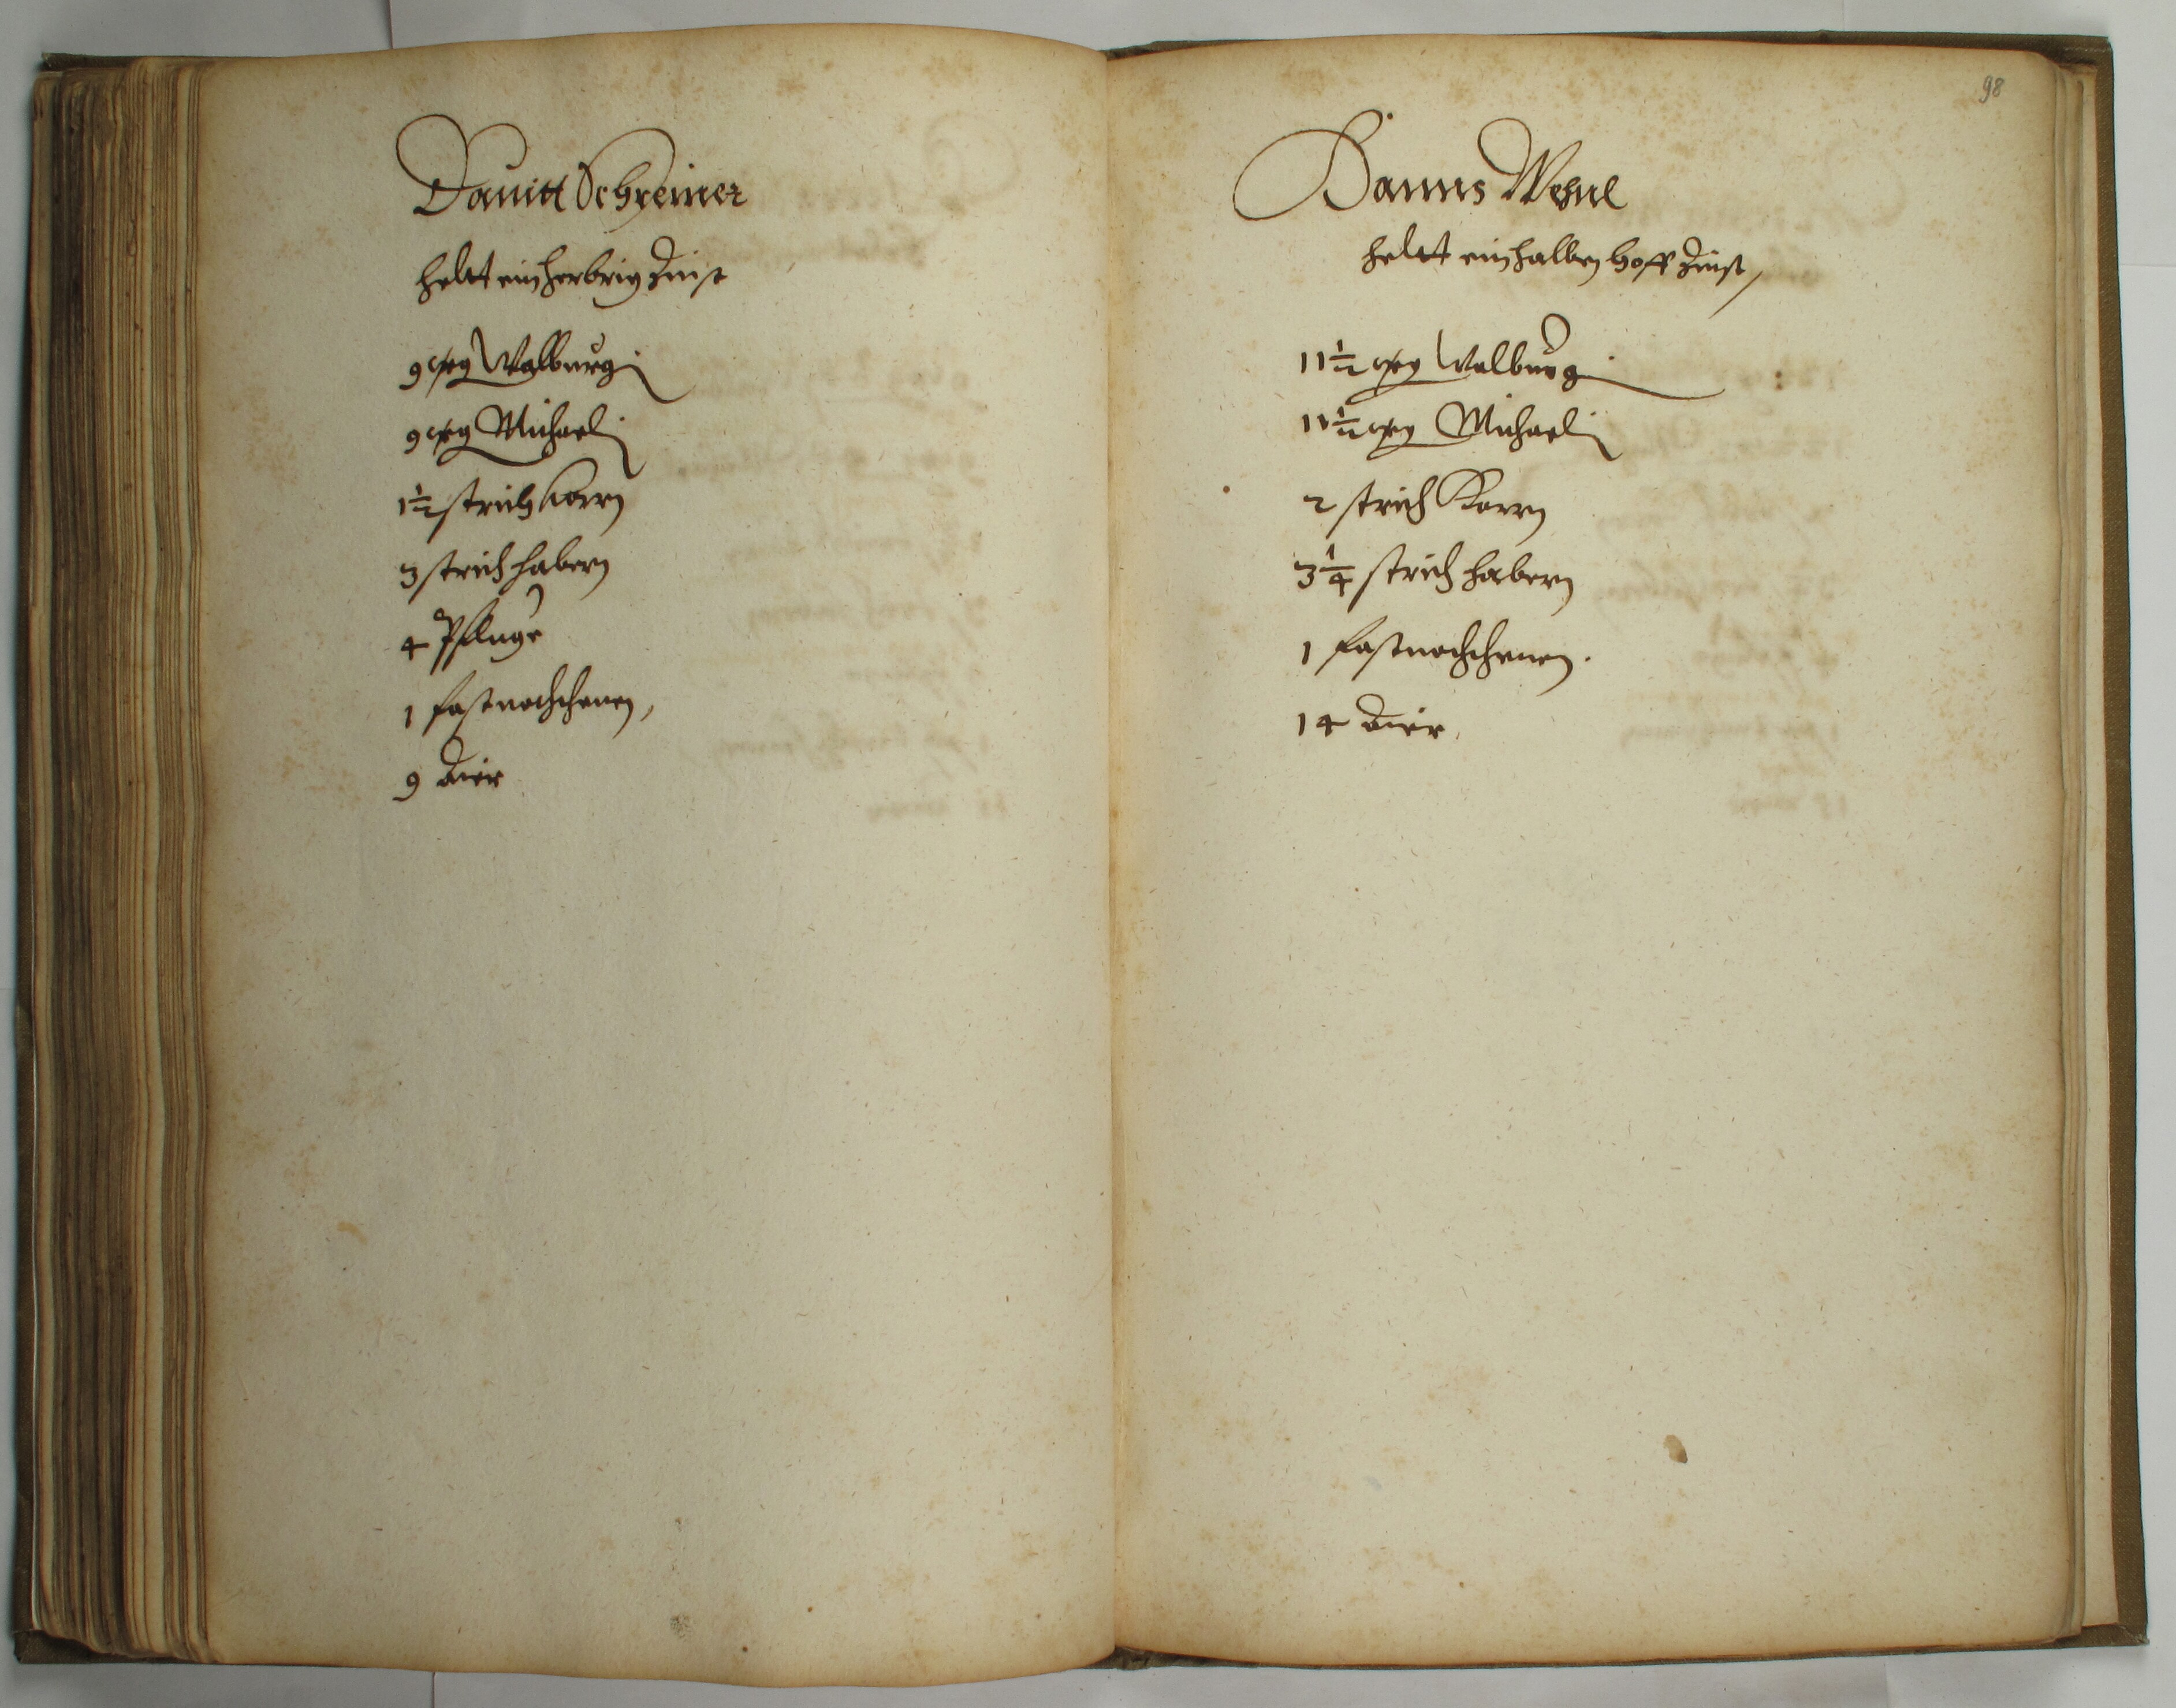 Dauitt Schreiner
heltt ein herbrig Zinst
9 gr Walburgi
9 gr Michaeli
1½ strich Korn
3 strich habern
4 Pfluge
1 fastnachthenen,
9 Aier
98
Hanns
heltt ein halben Hoff Zinst,
11½ gr Walburgi
11½ gr Michaeli
2 strich Korn
3¼ strich habern
1 fastnachthenen.
14 Aier,